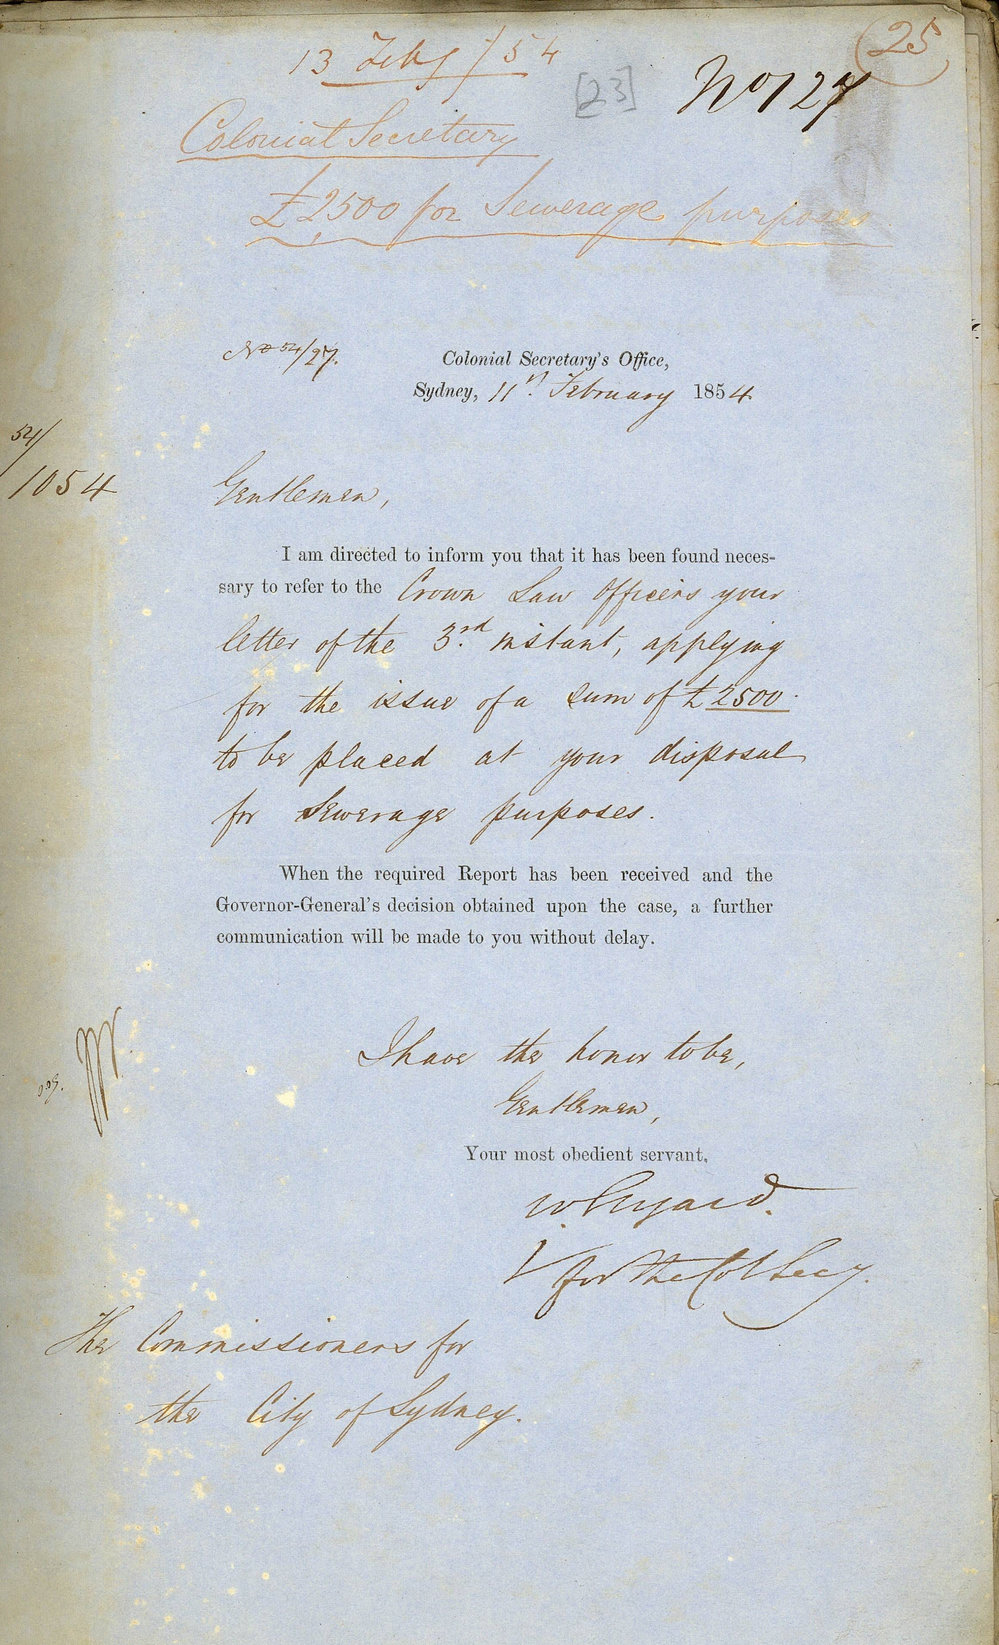 25
13 Feby /54
[23]
No 127
Colonial Secretary
£2500 for Sewerage purposes
No 54/27.
Colonial Secretary's Office,
Sydney, 11th February 1854.
54/
1054
Gentlemen,
I am directed to inform you that it has been found neces-
sary to refer to the Crown Law Officers your
letter of the 3rd instant, applying
for the issue of a sum of £2500.
to be placed at your disposal
for Sewerage purposes.
When the required Report has been received and the
Governor-General's decision obtained upon the case, a further
communication will be made to you without delay.
I have the honor to be,
Gentlemen,
Your most obedient servant,
W Elyard.
for the Col Secy.
The Commissioners for
the City of Sydney.